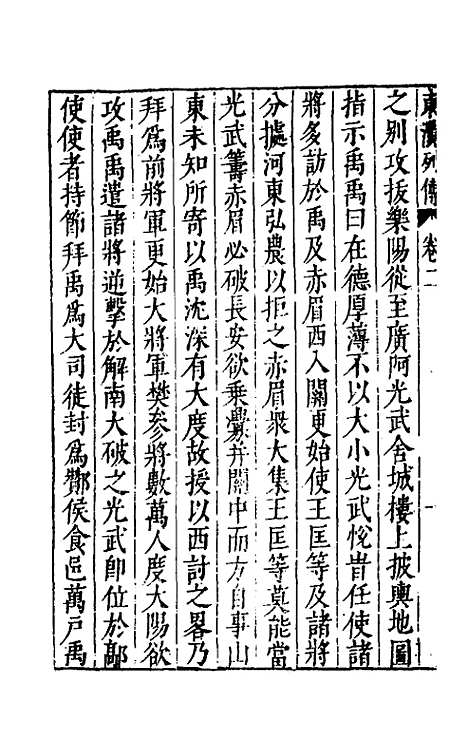 東漢列傳 卷二 一
之别攻拔樂陽從至廣阿光武舍城樓上披輿地圖
指示禹禹曰在德厚薄不以大小光武恱旹任使諸
將多訪於禹及赤眉西入關更始使王匡等及諸將
分據河東弘農以拒之赤眉衆大集王匡等莫能當
光武籌赤眉必破長安欲乗釁并關中而方自事山
東未知所寄以禹沈深有大度故授以西討之畧乃
拜爲前將軍更始大將軍樊參將數萬人度大陽欲
攻禹禹遣諸將逆擊於解南大破之光武即位於鄗
使使者持節拜禹爲大司徒封爲酇侯食邑萬戸禹